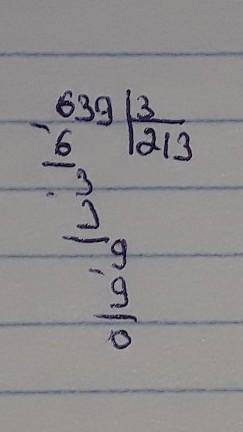 639 | 3
- 6 | 213
- 3
3
- 9
9
0